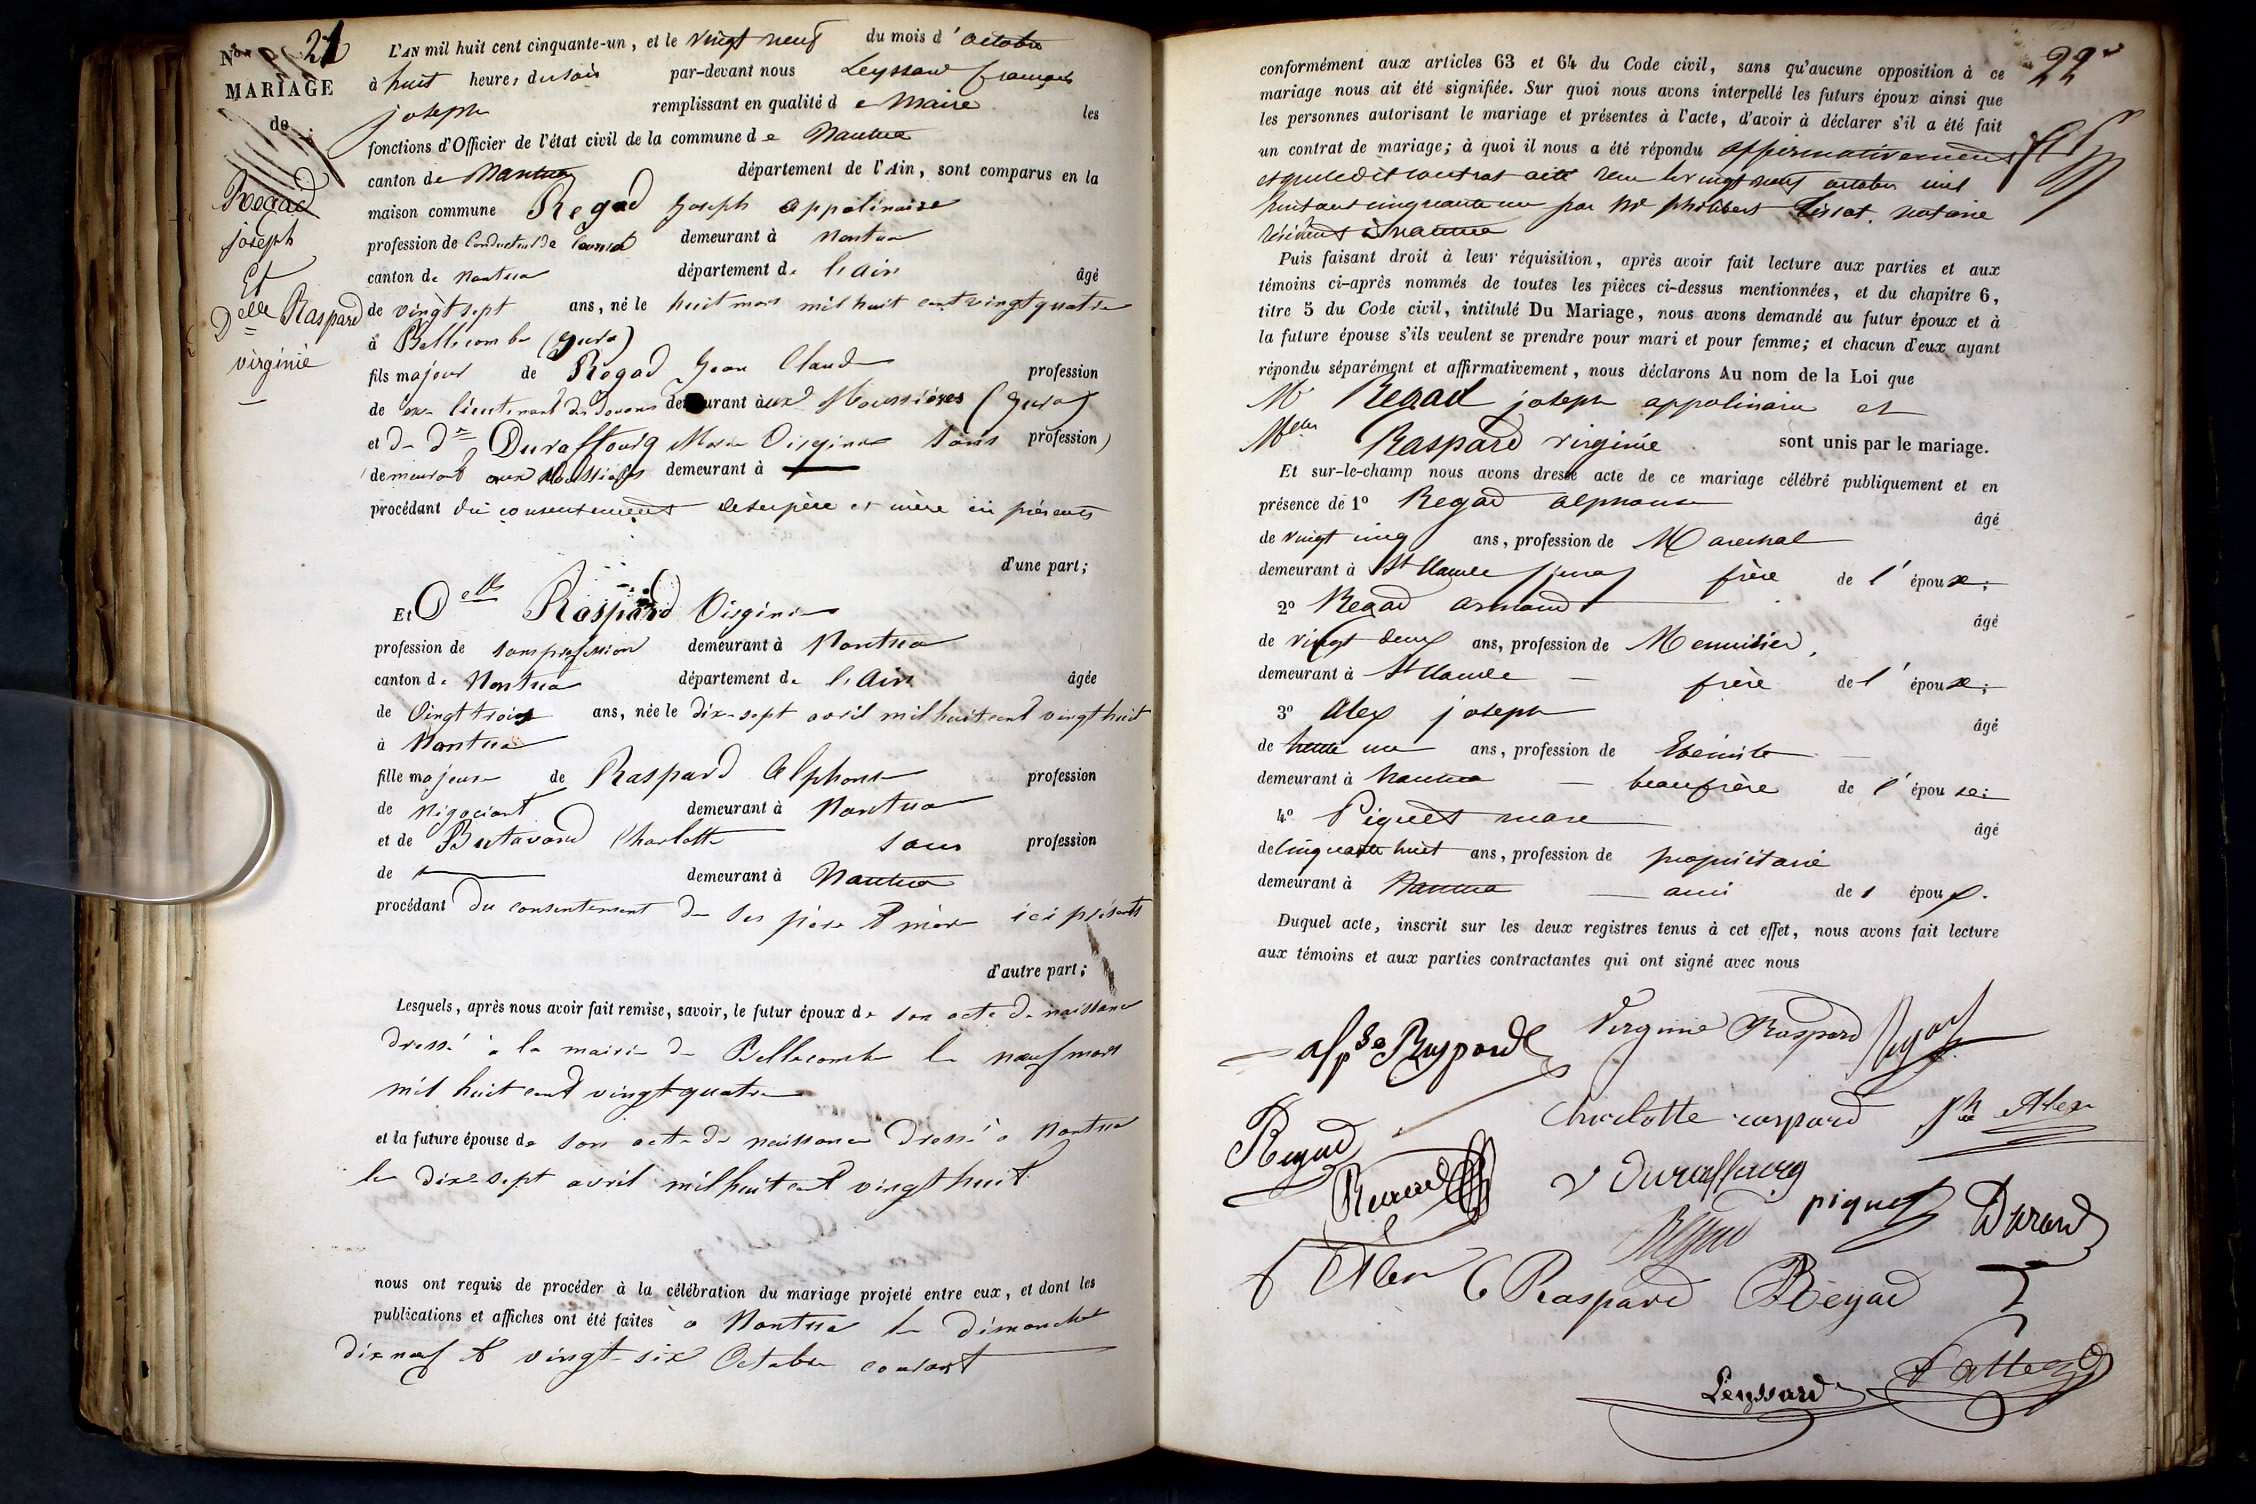 N° 21
MARIAGE
de
Regad
joseph
Et
Delle Raspard
virginie
L'AN mil huit cent cinquante-un, et le vingt neuf du mois d'octobre
à huit heures du soir par-devant nous Leyssard françois
joseph remplissant en qualité de Maire les
fonctions d'Officier de l'état civil de la commune de Nantua
canton de Nantua département de l'Ain, sont comparus en la
maison commune Regad Joseph Appolinaire
profession de Conducteur de demeurant à Nantua
canton de Nantua département de l'ain âgé
de vingt sept ans, né le huit mars mil huit cent vingt quatre
à Bellecombe (Jura)
fils majeur de Regad Jean Claude profession
de ex-lieutenant des douanes demeurant aux Moussières (Jura)
et de de Duraffourg Marie Virginie sans profession
demeurant aux Moussières demeurant à
procédant du consentement de ses père et mère ici présents
d'une part;
Et Delle Raspard Virginie
profession de sans profession demeurant à Nantua
canton de Nantua département de l'Ain âgée
de vingt trois ans, née le dix-sept avril mil huit cent vingt huit
à Nantua
fille majeure de Raspard Alphonse profession
de Négociant demeurant à Nantua
et de Butavand Charlotte sans profession
de demeurant à Nantua
procédant du consentement de ses père et mère ici présents
d'autre part;
Lesquels, après nous avoir fait remise, savoir, le futur époux de son acte de naissance
dressé à la mairie de Bellecombe le neuf mars
mil huit cent vingt quatre
et la future épouse de son acte de naissance dressé à Nantua
le dix-sept avril mil huit cent vingt huit
nous ont requis de procéder à la célébration du mariage projeté entre eux, et dont les
publications et affiches ont été faites à Nantua les dimanches
dix neuf et vingt-six Octobre courant
22
conformément aux articles 63 et 64 du Code civil, sans qu'aucune opposition à ce
mariage nous ait été signifiée. Sur quoi nous avons interpellé les futurs époux ainsi que
les personnes autorisant le mariage et présentes à l'acte, d'avoir à déclarer s'il a été fait
un contrat de mariage; à quoi il nous a été répondu affirmativement
et que ledit contrat a été reçu le vingt neuf octobre mil
huit cent cinquante un par Me philibert notaire
résidant à nantua
Puis faisant droit à leur réquisition, après avoir fait lecture aux parties et aux
témoins ci-après nommés de toutes les pièces ci-dessus mentionnées, et du chapitre 6,
titre 5 du Code civil, intitulé Du Mariage, nous avons demandé au futur époux et à
la future épouse s'ils veulent se prendre pour mari et pour femme; et chacun d'eux ayant
répondu séparément et affirmativement, nous déclarons Au nom de la Loi que
Mr Regad joseph appolinaire et
Melle Raspard virginie sont unis par le mariage.
Et sur-le-champ nous avons dressé acte de ce mariage célébré publiquement et en
présence de 1° Regad alphonse âgé
de vingt cinq ans, profession de Marechal
demeurant à St Claude (jura) frère de l'époux;
2° Regad armand âgé
de vingt deux ans, profession de Menuisier,
demeurant à St Claude frère de l'époux;
3° Alex joseph âgé
de trente un ans, profession de Ebéniste
demeurant à nantua beaufrère de l'épouse;
4° Piquet marc âgé
de cinquante huit ans, profession de propriétaire
demeurant à Nantua ami de l'époux.
Duquel acte, inscrit sur les deux registres tenus à cet effet, nous avons fait lecture
aux témoins et aux parties contractantes qui ont signé avec nous
alpse Raspard Virginie Raspard Regad
Regad Charlotte raspard Jh Alex
v Duraffourg
Regad piquet Durand
Alex C Raspard Régad
Leyssard